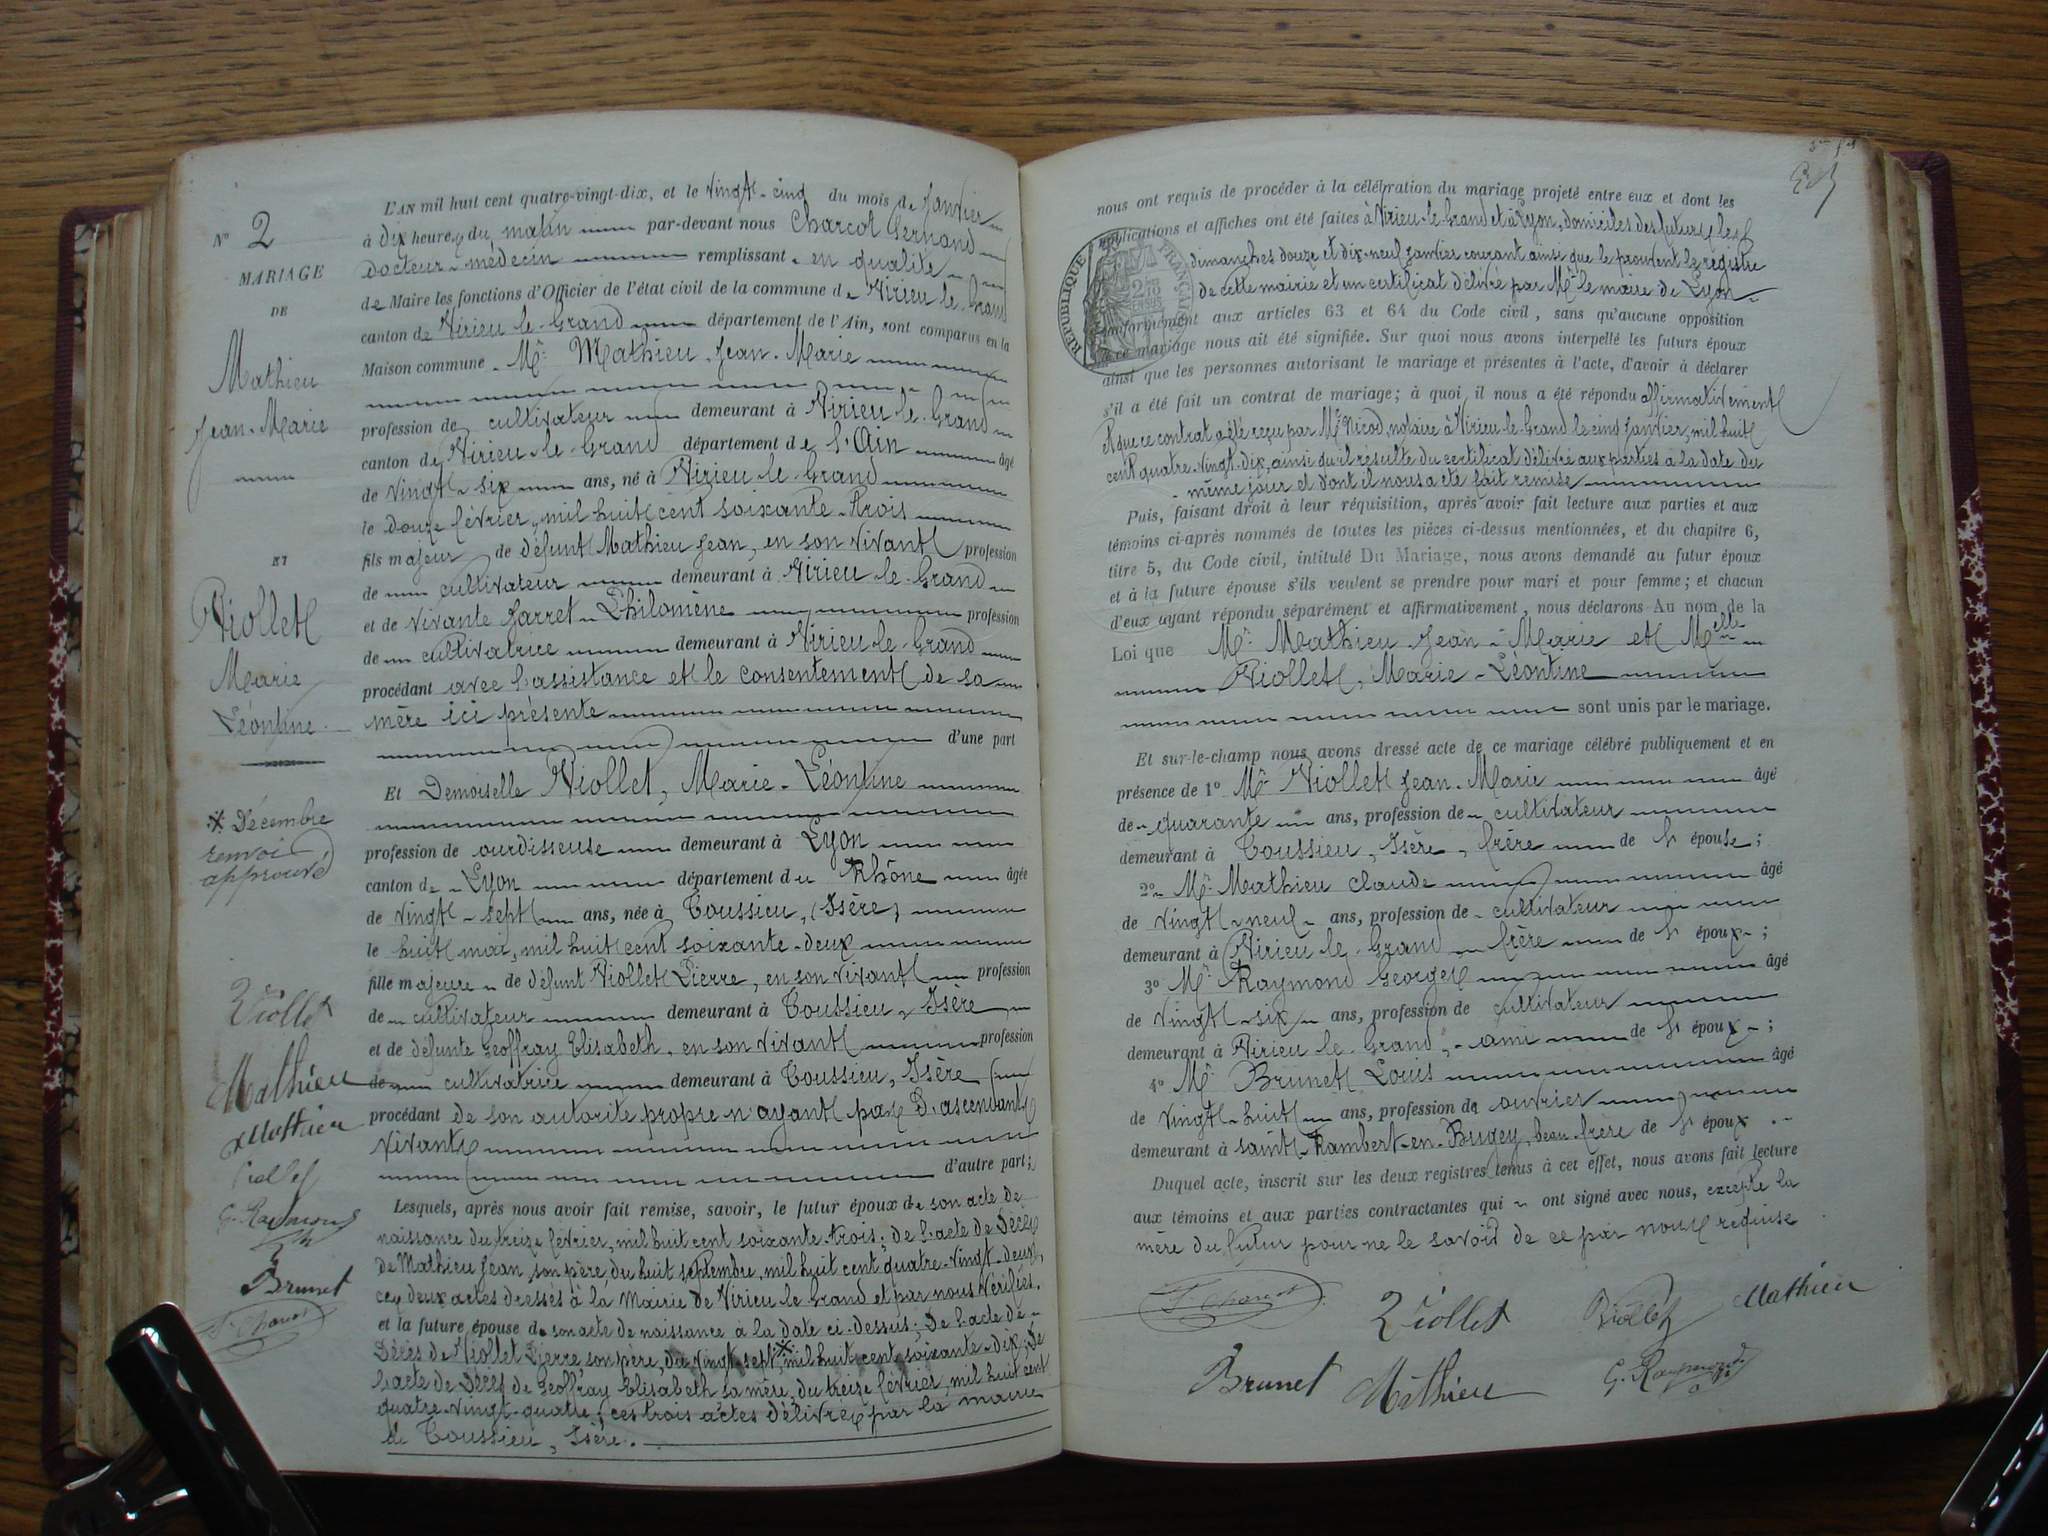 L'AN mil huit cent quatre-vingt-dix, et le vingt-cinq du mois de Janvier
à dix heures du matin par-devant nous Charcot Fernand
Docteur-médecin remplissant en qualité
de Maire les fonctions d'Officier de l'état civil de la commune de Virieu-le-Grand
canton de Virieu-le-Grand département de l'Ain, sont comparus en la
Maison commune Mr Mathieu Jean-Marie
profession de cultivateur demeurant à Virieu-le-Grand
canton de Virieu-le-Grand département de l'Ain âgé
de vingt-six ans, né à Virieu-le-Grand
le douze février, mil huit cent soixante-trois
fils majeur de défunt Mathieu Jean, en son vivant profession
de cultivateur demeurant à Virieu-le-Grand
et de vivante Jarret Philomène profession
de cultivatrice demeurant à Virieu-le-Grand
procédant avec l'assistance et le consentement de sa
mère ici présente
d'une part
Et Demoiselle Viollet, Marie-Léontine
profession de ourdisseuse demeurant à Lyon
canton de Lyon département du Rhône âgée
de vingt-sept ans, née à Toussieu, (Isère)
le huit mai, mil huit cent soixante-deux
fille majeure de défunt Viollet Pierre, en son vivant profession
de cultivateur demeurant à Toussieu, Isère
et de défunte Geoffray Elisabeth, en son vivant profession
de cultivatrice demeurant à Toussieu, Isère
procédant de son autorité propre n'ayant pas d'ascendants
vivants
d'autre part;
Lesquels, après nous avoir fait remise, savoir, le futur époux de son acte de
naissance du treize février, mil huit cent soixante-trois; de l'acte de décès
de Mathieu Jean, son père, du huit septembre, mil huit cent quatre-vingt-deux,
ces deux actes dressés à la Mairie de Virieu-le-Grand et par nous vérifiés.
et la future épouse de son acte de naissance à la date ci-dessus; de l'acte de
décès de Viollet Pierre, son père, du vingt-sept * mil huit cent soixante-dix; de
l'acte de décès de Geoffray Elisabeth sa mère, du treize février, mil huit cent
quatre-vingt-quatre; ces trois actes délivrés par la mairie
de Toussieu, Isère.
N° 2
MARIAGE
DE
Mathieu
Jean-Marie
ET
Viollet
Marie
Léontine
* Décembre
renvoi
approuvé
Viollet
Mathieu
Mathieu
Viollet
G. Raymond
Brunet
F. Charcot
nous ont requis de procéder à la célébration du mariage projeté entre eux et dont les
publications et affiches ont été faites à Virieu-le-Grand et à Lyon, domiciles des futurs les
dimanches douze et dix-neuf janvier courant ainsi que le prouvent le registre
de cette mairie et un certificat délivré par Mr le maire de Lyon
conformément aux articles 63 et 64 du Code civil, sans qu'aucune opposition
à ce mariage nous ait été signifiée. Sur quoi nous avons interpellé les futurs époux
ainsi que les personnes autorisant le mariage et présentes à l'acte, d'avoir à déclarer
s'il a été fait un contrat de mariage; à quoi il nous a été répondu affirmativement
et que ce contrat a été reçu par Me Nicod, notaire à Virieu-le-Grand le cinq Janvier, mil huit
cent quatre-vingt-dix, ainsi qu'il résulte du certificat délivré aux parties à la date du
même jour et dont il nous a été fait remise
Puis, faisant droit à leur réquisition, après avoir fait lecture aux parties et aux
témoins ci-après nommés de toutes les pièces ci-dessus mentionnées, et du chapitre 6,
titre 5, du Code civil, intitulé Du Mariage, nous avons demandé au futur époux
et à la future épouse s'ils veulent se prendre pour mari et pour femme; et chacun
d'eux ayant répondu séparément et affirmativement, nous déclarons Au nom de la
Loi que Mr Mathieu Jean-Marie et Melle
Viollet, Marie-Léontine
sont unis par le mariage.
Et sur-le-champ nous avons dressé acte de ce mariage célébré publiquement et en
présence de 1° Mr Viollet Jean-Marie âgé
de quarante ans, profession de cultivateur
demeurant à Toussieu, Isère, frère de l'épouse;
2° Mr Mathieu Claude âgé
de vingt-neuf ans, profession de cultivateur
demeurant à Virieu-le-Grand frère de l'époux;
3° Mr Raymond Georges âgé
de vingt-six ans, profession de cultivateur
demeurant à Virieu-le-Grand, ami de l'époux;
4° Mr Brunet Louis âgé
de vingt-huit ans, profession de ouvrier
demeurant à saint-Rambert-en-Bugey, beau-frère de l'époux
Duquel acte, inscrit sur les deux registres tenus à cet effet, nous avons fait lecture
aux témoins et aux parties contractantes qui ont signé avec nous, excepté la
mère du futur pour ne le savoir de ce par nous requise
F. Charcot
Viollet
Viollet
Mathieu
Brunet
Mathieu
G. Raymond
REPUBLIQUE FRANÇAISE